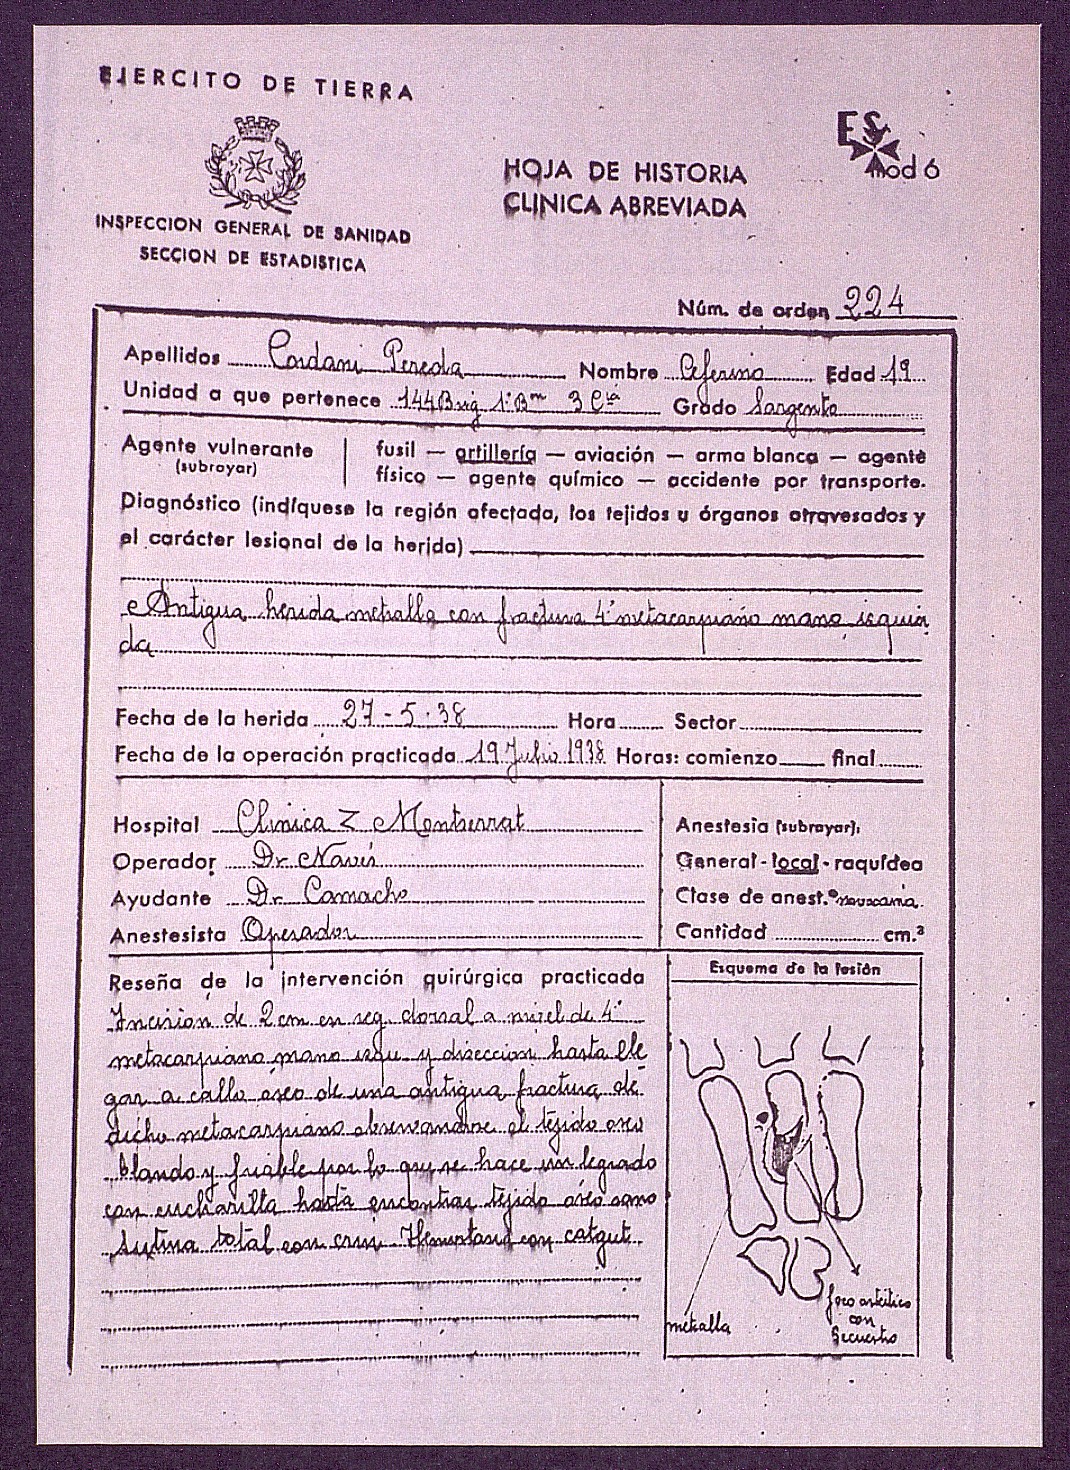 EJERCITO DE TIERRA
E.S.
mod 6
HOJA DE HISTORIA
CLINICA ABREVIADA
INSPECCION GENERAL DE SANIDAD
SECCION DE ESTADISTICA
Núm. de orden 224
Apellidos Cordani Pereda Nombre Ceferino Edad 19
Unidad a que pertenece 144 Brig 1º Bon 3 Cia Grado Sargento
Agente vulnerante
(subrayar)
fusil — artillería — aviación — arma blanca — agente
físico — agente químico — accidente por transporte.
Diagnóstico (indíquese la región afectada, los tejidos u órganos atravesados y
el carácter lesional de la herida)
Antigua herida metralla con fractura 4º metacarpiano mano izquier
da
Fecha de la herida 27-5-38 Hora Sector
Fecha de la operación practicada 19 Julio 1938 Horas: comienzo final
Hospital Clinica Z Montserrat
Operador Dr
Ayudante Dr. Camacho
Anestesista Operador
Anestesia (subrayar):
General - local - raquídea
Clase de anest.ª novocaina
Cantidad cm.³
Reseña de la intervención quirúrgica practicada
Incision de 2 cm en reg. dorsal a nivel de 4º
metacarpiano mano izqu y diseccion hasta lle
gar a callo oseo de una antigua fractura de
dicho metacarpiano observandose el tejido oseo
blando y friable por lo que se hace un legrado
con cucharilla hasta encontrar tejido oseo sano
Sutura total con crin Hemostasia con catgut.
Esquema de la lesión
metralla
foco osteitico
con
Secuestro